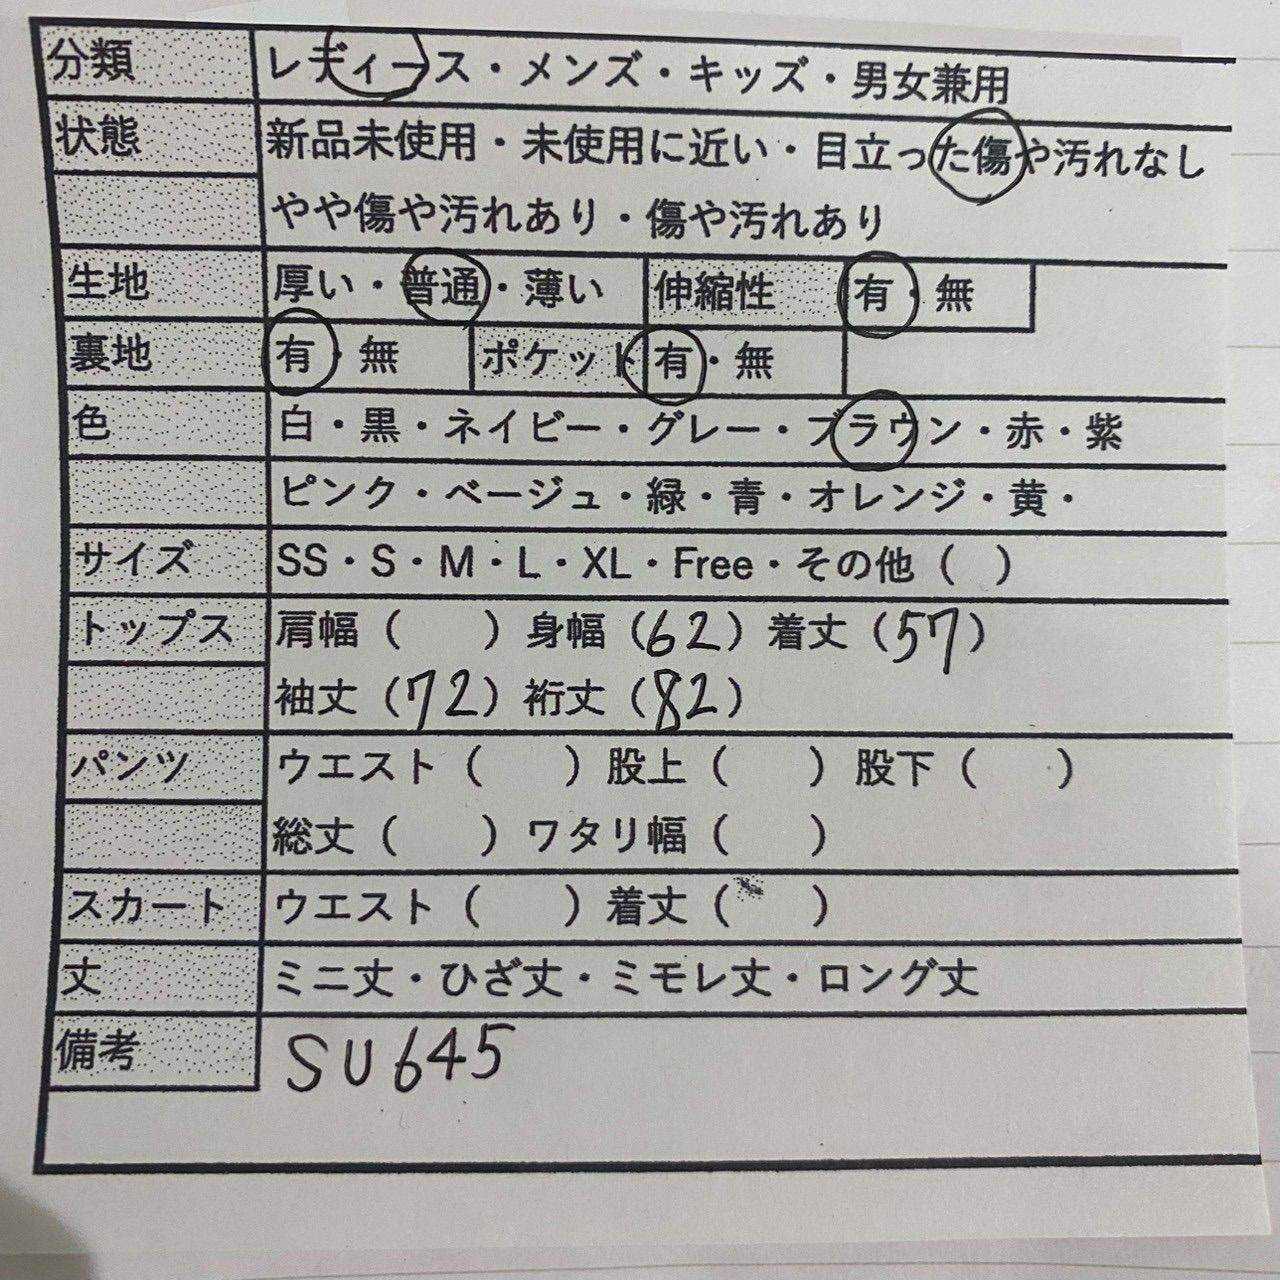 分類 レディース・メンズ・キッズ・男女兼用
状態 新品未使用・未使用に近い・目立った傷や汚れなし
やや傷や汚れあり・傷や汚れあり
生地 厚い・普通・薄い 伸縮性 有・無
裏地 有・無 ポケット 有・無
色 白・黒・ネイビー・グレー・ブラウン・赤・紫
ピンク・ベージュ・緑・青・オレンジ・黄・
サイズ SS・S・M・L・XL・Free・その他（ ）
トップス 肩幅（ ）身幅（62）着丈（57）
袖丈（72）裄丈（82）
パンツ ウエスト（ ）股上（ ）股下（ ）
総丈（ ）ワタリ幅（ ）
スカート ウエスト（ ）着丈（ ）
丈 ミニ丈・ひざ丈・ミモレ丈・ロング丈
備考 SU645